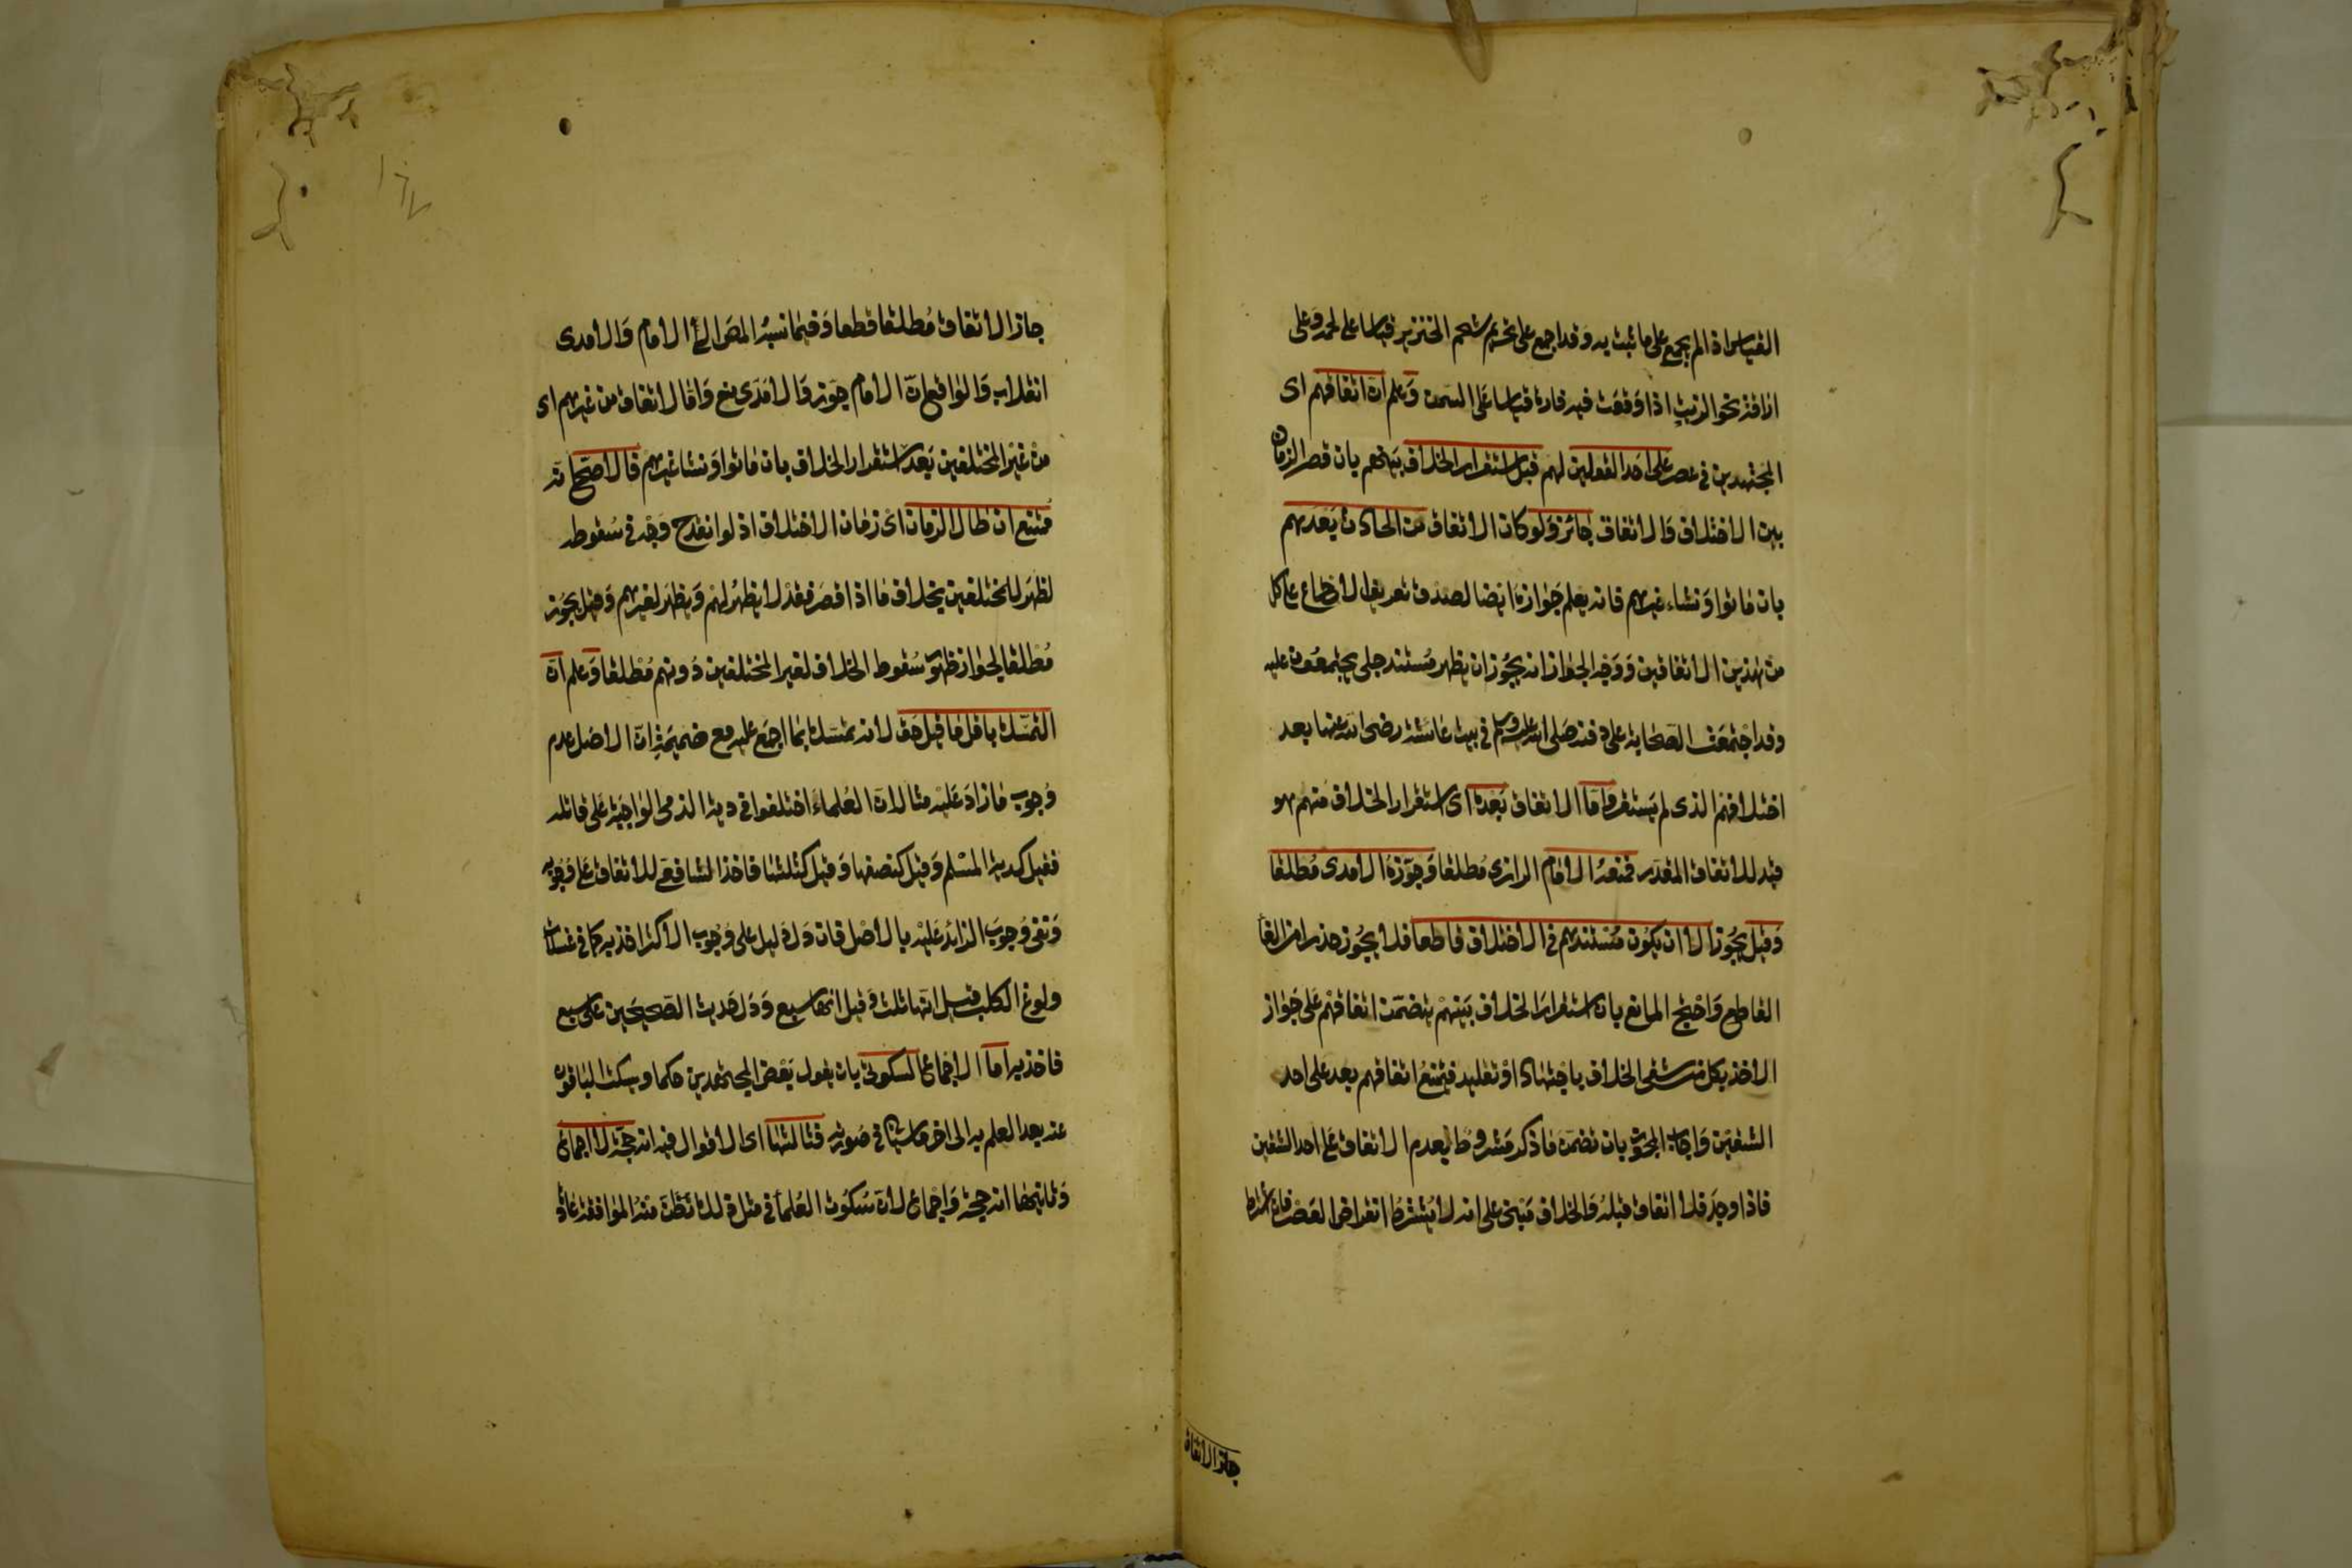 القياس اذا لم يجمع على ما ثبت به وقد اجمع على تحريم شحم الخنزير قياسا على لحمه وعلى
اراقة نحو الزيت اذا وقعت فيه فارة قياسا على السمن وعلم ان اتفاقهم اى
المجتهدين فى عصر على احد القولين لهم قبل استقرار الخلاف بينهم بان قصر الزمان
بين الاختلاف والاتفاق جائز ولو كان الاتفاق من الحادث بعدهم
بان ماتوا ونشاء غيرهم فانه يعلم جوازه ايضا لصدق تعريف الاجماع على كل
من هذين الاتفاقين ووجه الجواز انه يجوز ان يظهر مستند جلى يجتمعون عليه
وقد اجتمعت الصحابة على دفنه صلى الله عليه وسلم فى بيت عائشة رضى الله عنها بعد
اختلافهم الذى لم يستقر واما الاتفاق بعده اى استقرار الخلاف منهم هو
قيد للاتفاق المقدر فمنعه الامام الرازى مطلقا وجوزه الامدى مطلقا
وقيل يجوز الا ان يكون مستندهم فى الاختلاف قاطعا فلا يجوز حذرا من الغا
القاطع واحتج المانع بان استقرار الخلاف بينهم يتضمن اتفاقهم على جواز
الاخذ بكل من شقى الخلاف باجتهاد او تقليد فيمتنع اتفاقهم بعد على احد
الشقين واجاب المجوز بان تضمن ما ذكر مشروط بعدم الاتفاق على احد الشقين
فاذا وجد فلا اتفاق قبله والخلاف مبنى على انه لا يشترط انقراض العصر فان اشترط
جاز الاتفاق
جاز الاتفاق مطلقا قطعا وفيما نسبه المص الى الامام والامدى
انقلاب والواقع ان الامام جوز والامدى منع واما الاتفاق من غيرهم اى
من غير المختلفين بعد استقرار الخلاف بان ماتوا ونشا غيرهم فالاصح انه
ممتنع ان طال الزمان اى زمان الاختلاف اذ لو انقدح وجه فى سقوطه
لظهر للمختلفين بخلاف ما اذا قصر فقد لا يظهر لهم ويظهر لغيرهم وقيل يجوز
مطلقا لجواز ظهور سقوط الخلاف لغير المختلفين دونهم مطلقا وعلم ان
التمسك باقل ما قيل حق لانه تمسك بما اجمع عليه مع ضميمة ان الاصل عدم
وجوب ما زاد عليه مثاله ان العلماء اختلفوا فى دية الذمى الواجبة على قاتله
فقيل كدية المسلم وقيل كنصفها وقيل كثلثها فاخذ الشافعى للاتفاق على وجوبه
ونفى وجوب الزائد عليه بالاصل فان دل دليل على وجوب الاكثر اخذ به كما فى غسلات
ولوغ الكلب قيل انها ثلث وقيل انها سبع ودل حديث الصحيحين على سبع
فاخذ به اما الاجماع السكوتى بان يقول بعض المجتهدين حكما ويسكت الباقون
عنه بعد العلم به الى اخر ما سياتى فى صورته فثالثها اى الاقوال فيه انه حجة لا اجماع
وثانيها انه حجة واجماع لان سكوت العلماء فى مثل ذلك تظن منه الموافقة عادة